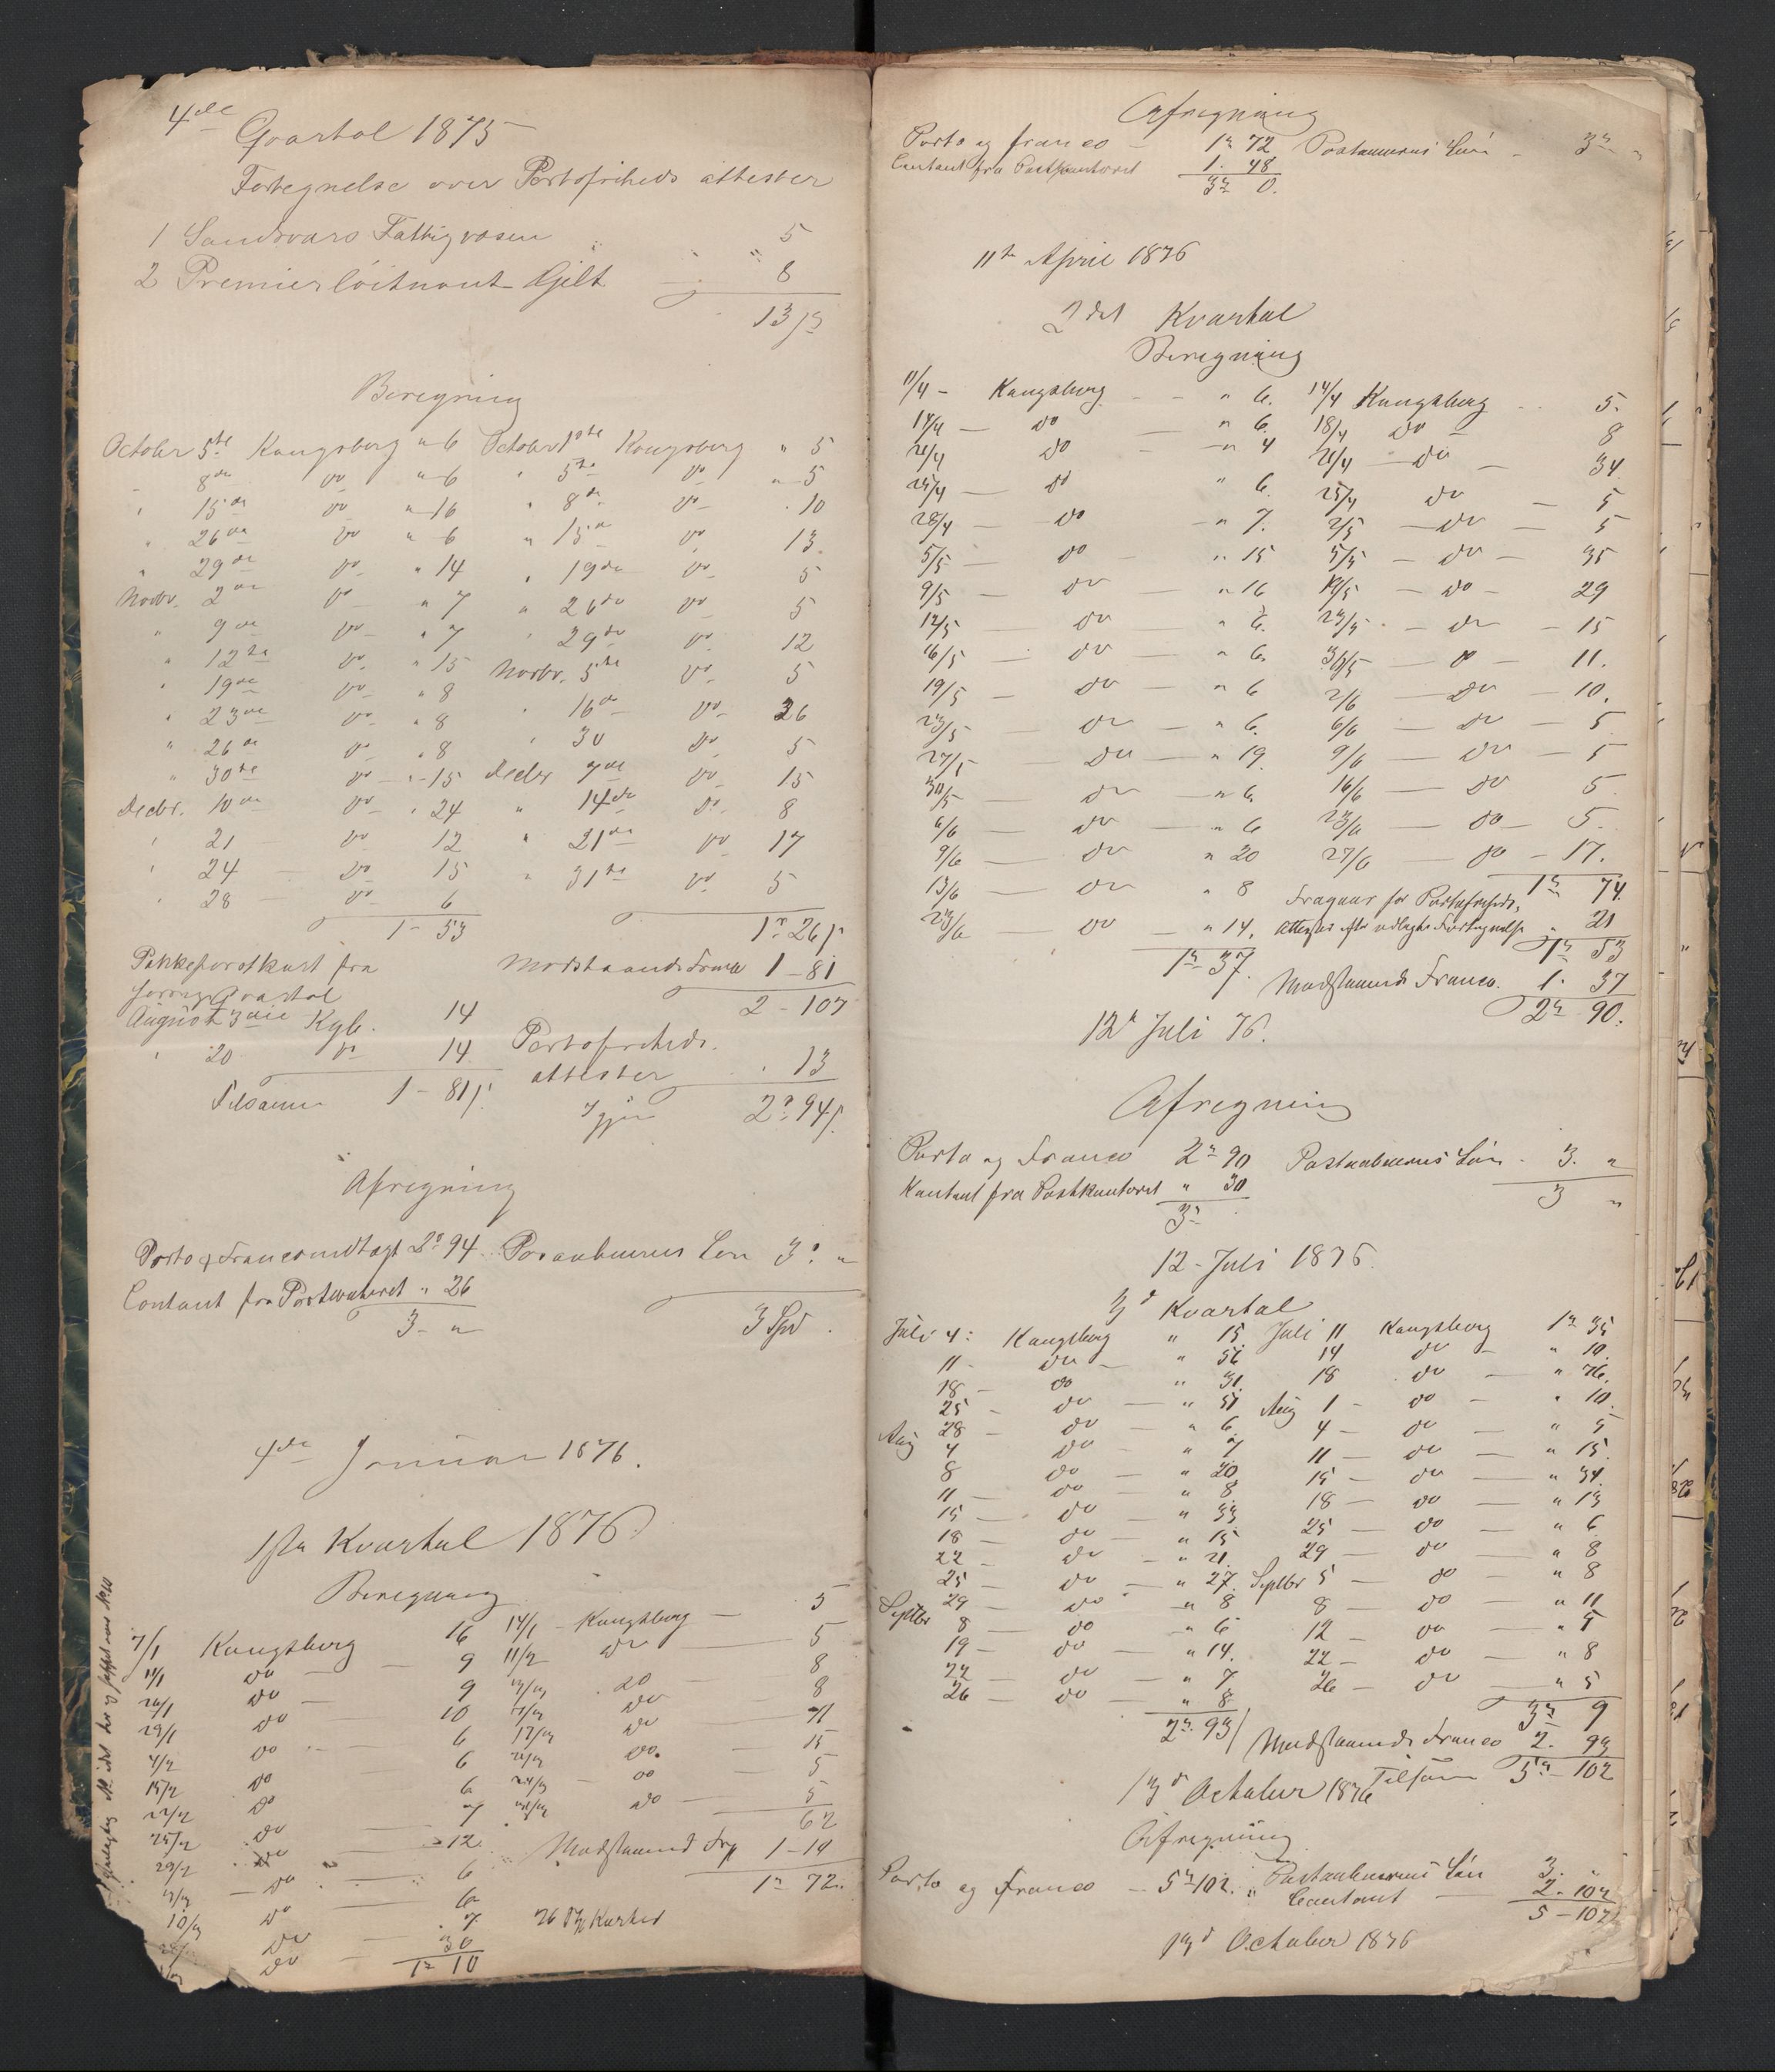 4de Qvartal 1875
Fortegnelse over Portofriheds attester
1 Sandsværs Fattigvæsen " 5
2 Premierlöitnant Gjelt " 8
13 ß
Beregning
October 5te Kongsberg " 6 October 1ste Kongsberg " 5
" 8de do " 6 " 5te do " 5
" 15de do " 16 " 8de do " 10
" 26de do " 6 " 15de do 13
" 29de do " 14 " 19de do 5
Novbr. 2de do " 7 " 26de do 5
" 9de do " 7 " 29de do 12
" 12te do " 15 Novbr. 5te do 5
" 19de do " 8 " 16de do 36
" 23de do " 8 " 30 do 5
" 26de do " 8 Decbr 7de do 15
" 30te do " 15 " 14de do 8
Decbr. 10de do " 24 " 21de do 17
" 21 do 12 " 31te do 5
" 24 do 15
" 28 do 6
1 - 53 1 26 ß
Pakkeportkart fra Modstaaende Franco 1 - 81
forrige Qvartal 2 - 107
August 3die Kgb. 14 Portofriheds.
" 20 do 14 attester " 13
Tilsamme 1 - 81 ß Igjen 2 94 ß.
Afregning
Porto & Franco modtagt 2 94 Posaabneres Løn 3 "
Contant fra Postkontoret " 26
3 - " 3 Spd.
4de Januar 1876.
1ste Kvartal 1876
Beregning
7/1 Kongsberg 16 14/1 - Kongsberg - 5
11/1 do - 9 11/2 do - 5
do - 9 do - 8
29/1 do - 10 do - 8
4/2 do - 6 do - 11
15/2 do 6 do - 15
22/2 do 6 do - 5
25/2 do 7 do - 5
29/2 do 12 62
do 6 Modstaaende Fr 1 - 10
10/3 do 6 1 72.
do 7
do 30
1 10
Afregning
Porto og franco - 1 72 Postaabneres Løn - 3 "
Contant fra Postkontoret 1. 48
3 0.
11te April 1876
2det Kvartal
Beregning
11/4 - Kongsberg - " 6. 14/4 Kongsberg - 5.
14/4 - do - " 6. 18/4 do - 8
21/4 do - " 4 21/4 - do - 34
25/4 - do " 6. 25/4 do - 5
28/4 - do - " 7. 2/5 - do - 5
5/5 - do - " 15 5/5 - do - 35
9/5 - do - " 16 19/5 - do - 29
12/5 - do - " 6. 23/5 - do - 15
16/5 - do - " 6. 30/5 - do - 11.
19/5 - do - " 6 2/6 - do - 10.
23/5 - do - " 6. 6/6 - do - 5
27/5 do - " 19. 9/6 - do - 5
30/5 - do - " 6. 16/6 - do 5.
6/6 - do - " 6 23/6 - do - 5.
9/6 - do " 20 27/6 - do - 17.
13/6 - do " 8 Fragaar for Portofriheds, 1 74.
23/6 - do - " 14. attester efter vedlagte Fortegnelse " 21
1 37. 1 53
Modstaaende Franco. 1. 37
2 90.
12te Juli 76.
Afregning
Porto og Franco 2 90 Postaabneres Løn - 3. "
Kontant fra Postkontoret " 30 3 "
3
12 - Juli 1876.
3d Kvartal
Juli 4: Kongsberg " 15. Juli 11 Kongsberg 1 35
11 - do - " 56 14 do - " 10.
18 - do " 31. 18 do - " 76.
25 - do - " 51 Aug 1 - do - " 10.
28 - do - " 6. 4 - do - " 5
Aug 4 do - " 7 11 - do - " 15.
8 do - " 20. 15 - do - " 34.
11 - do - " 8. 18 - do - " 13
15 - do - " 33 25 - do - " 6
18 - do - " 15 29 - do - " 8
22 - do - " 21. Septbr 5 - do - " 8
25 - do - " 27. 8 - do - " 11
29 - do - " 8 12 - do - " 5
Septbr 8 - do - " 6 22 - do - " 8
19 - do - " 14. 26 - do - " 5
22 - do - " 7 3 9
26 - do - " 8
2 93 Modstaaende Franco 2. 93
Tilsam 5 - 102
13d October 1876
Afregning
Porto og franco - 5 102. Postaabneres Løn 3. "
" Contant - 2 - 102
5 - 102
13d October 1876